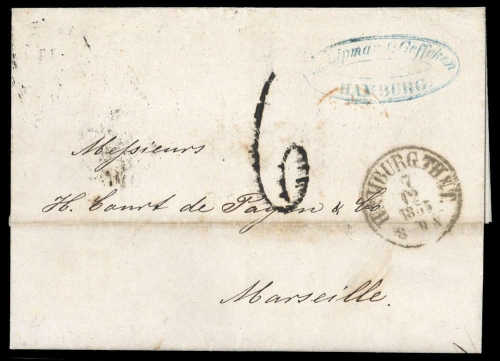 & Geffcken
HAMBURG.
6
Messieurs
H. Court de Payen & Co
Marseille.
HAMBURG TH.&T.
7
1855